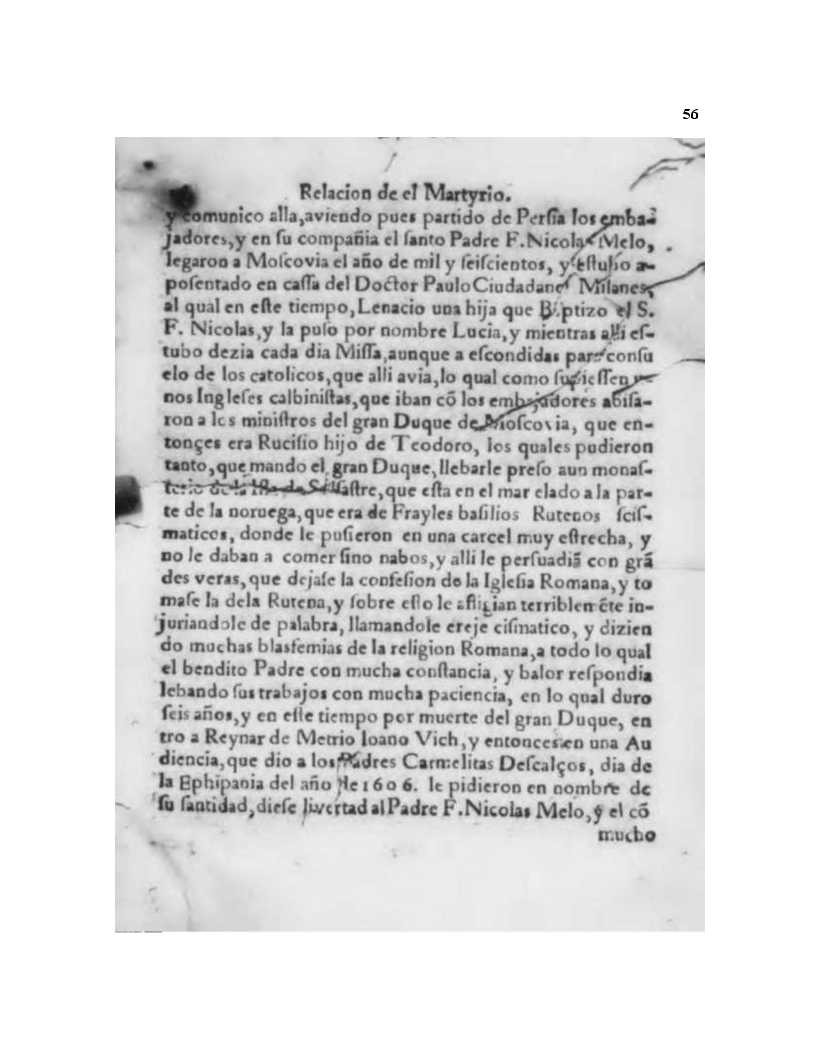 56
Relacion de el Martyrio.
y comunico alla,aviendo pues partido de Persia los emba-
jadores,y en su compañia el santo Padre F.Nicolas Melo,
legaron a Moscovia el año de mil y seiscientos, y estubo a-
posentado en cassa del Doctor Paulo Ciudadano Milanes,
al qual en este tiempo,Lenacio una hija que Baptizo el S.
F. Nicolas,y la puso por nombre Lucia,y mientras alli es-
tubo dezia cada dia Missa,aunque a escondidas para consu
elo de los catolicos,que alli avia,lo qual como supiessen u-
nos Ingleses calbinistas,que iban cõ los embajadores abisa-
ron a los ministros del gran Duque de Moscovia, que en-
tonçes era Rucisio hijo de Teodoro, los quales pudieron
tanto,que mando el gran Duque,llebarle preso aun monas-
terio de la,que esta en el mar elado a la par-
te de la noruega,que era de Frayles basilios Rutenos scis-
maticos, donde le pusieron en una carcel muy estrecha, y
no le daban a comer sino nabos,y alli le persuadiã con grã
des veras,que dejase la confesion de la Iglesia Romana,y to
mase la dela Rutena,y sobre esto le afligian terriblemẽte in-
juriandole de palabra, llamandole ereje cismatico, y dizien
do muchas blasfemias de la religion Romana,a todo lo qual
el bendito Padre con mucha constancia, y balor respondia
lebando sus trabajos con mucha paciencia, en lo qual duro
seis años,y en este tiempo por muerte del gran Duque, en
tro a Reynar de Metrio Ioano Vich,y entonces en una Au
diencia,que dio a los Padres Carmelitas Descalços, dia de
la Ephipania del año de 1606. le pidieron en nombre de
su santidad,diese livertad al Padre F.Nicolas Melo,y el cõ
mucho